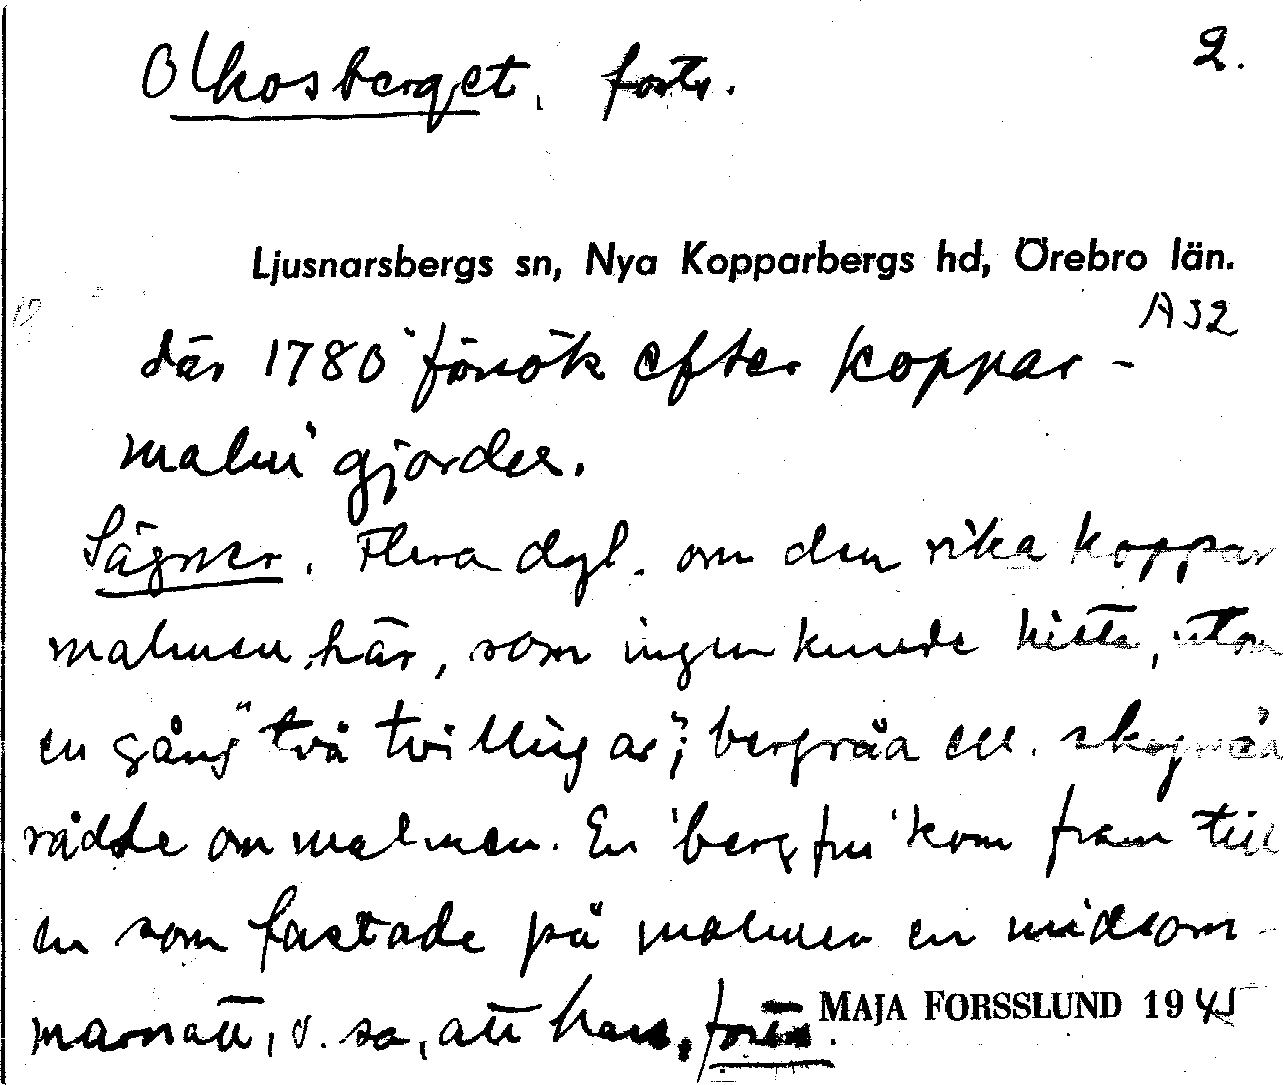 Olkosberget, forts. 2.
Ljusnarsbergs sn, Nya Kopparbergs hd, Örebro län.
A32
där 1780 "försök efter koppar-
malm" gjordes.
Sägner. Flera dyl. om den rika koppar
malmen här, som ingen kunde hitta, utom
en gång "två tvillingar"; bergråa ell. skogsråa
rådde om malmen. En 'bergfru' kom fram till
en som fastade på malmen en midsom-
marnatt, o. sa, att han,
MAJA FORSSLUND 1945